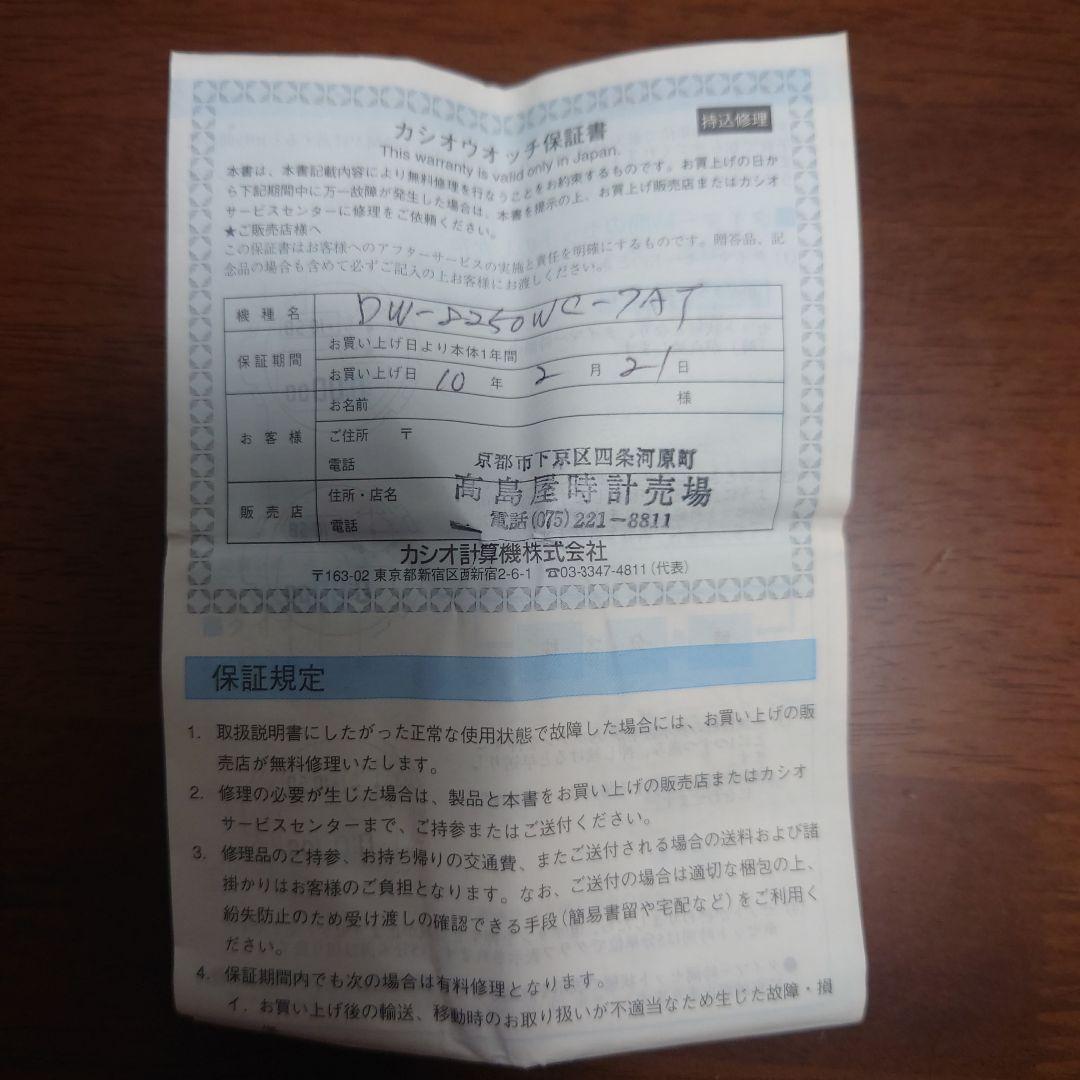 持込修理
カシオウオッチ保証書
This warranty is valid only in Japan.
本書は、本書記載内容により無料修理を行なうことをお約束するものです。お買上げの日か
ら下記期間中に万一故障が発生した場合は、本書を提示の上、お買上げ販売店またはカシオ
サービスセンターに修理をご依頼ください。
★ご販売店様へ
この保証書はお客様へのアフターサービスの実施と責任を明確にするものです。贈答品、記
念品の場合も含めて必ずご記入の上お客様にお渡しください。
機種名 DW-8250WC-7AT
保証期間 お買い上げ日より本体1年間
お買い上げ日 10年 2月 21日
お客様 お名前 様
ご住所 〒
電話
京都市下京区四条河原町
販売店 住所・店名 高島屋時計売場
電話 電話(075)221-8811
カシオ計算機株式会社
〒163-02 東京都新宿区西新宿2-6-1 ☎03-3347-4811(代表)
保証規定
1. 取扱説明書にしたがった正常な使用状態で故障した場合には、お買い上げの販
売店が無料修理いたします。
2. 修理の必要が生じた場合は、製品と本書をお買い上げの販売店またはカシオ
サービスセンターまで、ご持参またはご送付ください。
3. 修理品のご持参、お持ち帰りの交通費、またご送付される場合の送料および諸
掛かりはお客様のご負担となります。なお、ご送付の場合は適切な梱包の上、
紛失防止のため受け渡しの確認できる手段(簡易書留や宅配など)をご利用く
ださい。
4. 保証期間内でも次の場合は有料修理となります。
イ. お買い上げ後の輸送、移動時のお取り扱いが不適当なため生じた故障・損